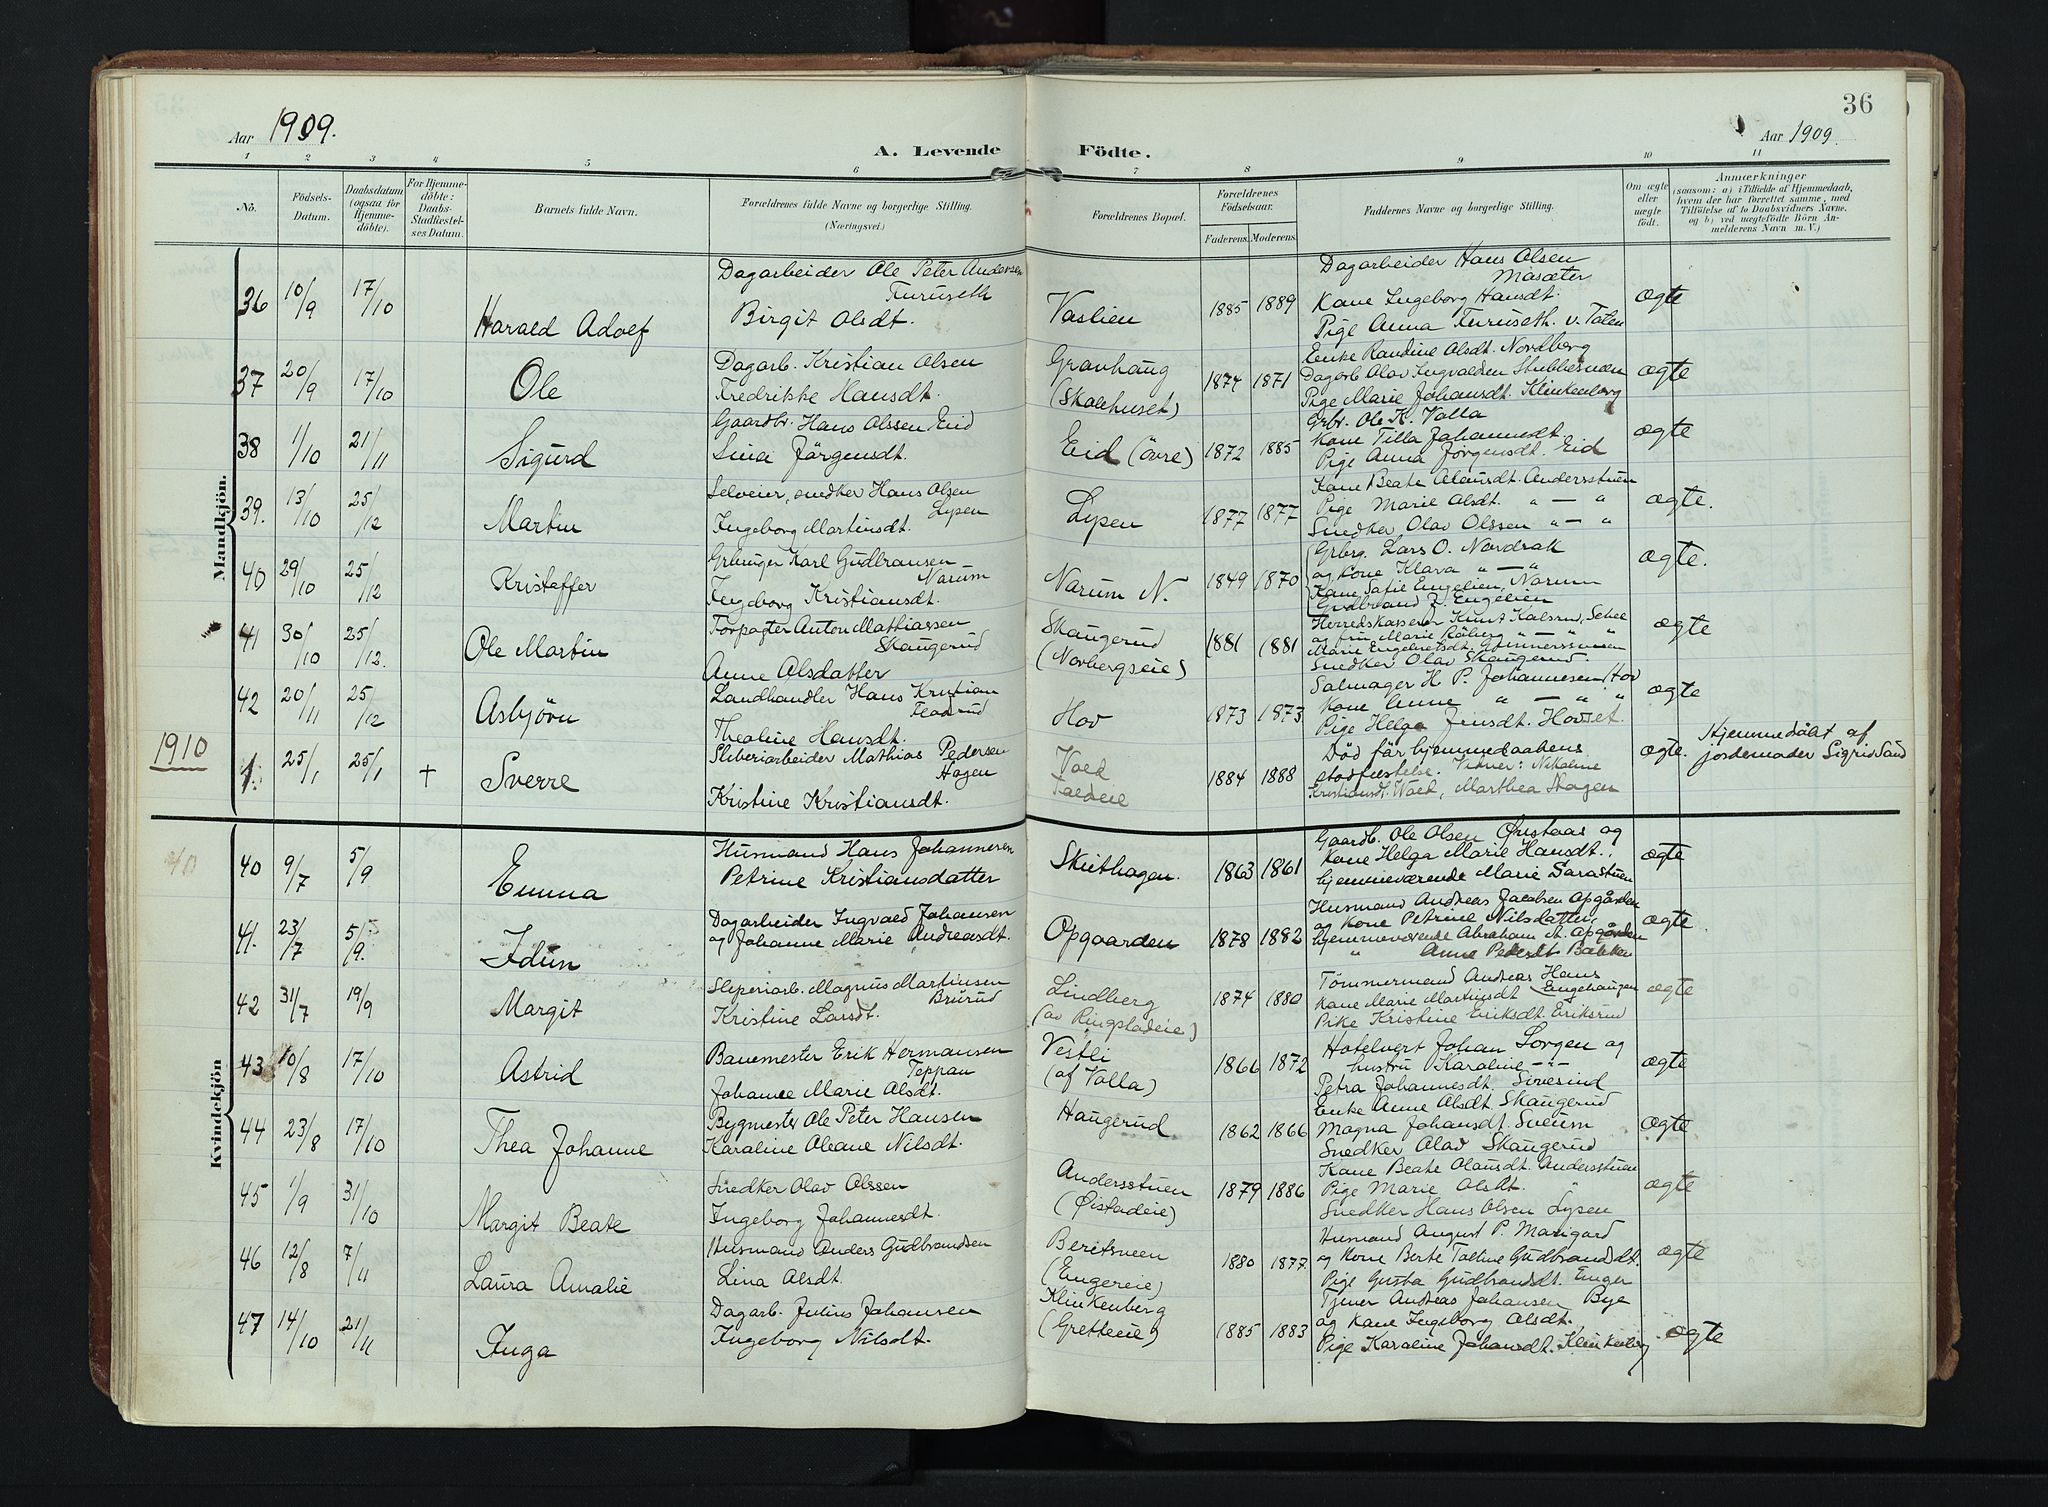 36
Aar 1909.
A. Levende Födte.
Aar 1909.
1 2 3 4 5 6 7 8 9 10 11
Nö.
Födsels-Datum.
Daabsdatum (ogsaa for Hjemme-döbte).
For Hjemme-döbte: Daabs-Stadfæstel-ses Datum.
Barnets fulde Navn.
Forældrenes fulde Navne og borgerlige Stilling. (Næringsvei.)
Forældrenes Bopæl.
Forældrenes Födselsaar.
Faderens. Moderens.
Faddernes Navne og borgerlige Stilling.
Om ægte eller uægte födt.
Anmærkninger
(saasom: a) i Tilfælde af Hjemmedaab,
hvem der har forrettet samme, med
Tilföielse af to Daabsvidners Navne.
og b) ved uægtefödte Börn An-
melderens Navn m. V.)
Mandkjön.
36 10/9 17/10 Harald Adolf
Dagarbeider Ole Peter Andersen
Furuseth
Birgit Olsdt.
Vaslien 1885 1889
Dagarbeider Hans Olsen
Masæter
Kone Ingeborg Hansdt.
Pige Anna Furuseth. v. Tolen
ægte
37 20/9 17/10 Ole
Dagarb. Kristian Olsen
Fredrikke Hansdt.
Gravhaug
(Skolehuset)
1874 1871
Enke Randine Olsdt. Nordberg
Dagarb Olav Ingvalden
Pige Marie Johansdt. Klinkenberg
ægte
38 1/10 21/11 Sigurd
Gaardbr. Hans Olssen Eid
Lina Jörgensdt.
Eid (övre) 1872 1885
Grbr. Ole K. Volla
Kone Tilla Johannesdt.
Pige Anna Jörgensdt. Eid
ægte
39. 13/10 25/12 Martin
Selveier, snedker Hans Olsen
Lypen
Ingeborg Martinsdt.
Lypen 1877 1877
Kone Beate Olausdt. Andersstuen
Pige Marie Olsdt. " — "
Snedker Olav Olssen " — "
ægte.
40 29/10 25/12 Kristoffer
Grbruger Karl Gudbransen
Narum
Ingeborg Kristiansdt.
Narum N. 1849 1870
Grbrg. Lars O. Nordrak
og Kone Klara " — "
Kone Sofie Engelien, Narum
Gudbrand J. Engelien
ægte.
41 30/10 25/12. Ole Martin
Forpagter Anton Mathiassen
Skaugerud
Anne Olsdatter
Skaugerud
(Norbergseie)
1881 1881
Herredskasserer Knut
og frue Marie
Marie Engebretsdt.
Snedker Olav Skaugerud.
ægte
42 20/11 25/12 Asbjörn
Landhandler Hans Kristian
Theoline Hansdt.
Hov 1873 1873
Salmager H. P. Johannesen, Hov
Kone Anne " — " "
Pige Helga Jensdt. Hovset.
ægte
1910
1. 25/1 25/1 + Sverre
Sliberiarbeider Mathias Pedersen
Hagen
Kristine Kristiansdt.
1884 1888
Död för hjemmedaabens
stadfæstelse. Vidner: Nikoline
Kristiansdt. Vold, Marthea Hagen
ægte.
Hjemmedöbt af
jordemoder Sigrid Sand
Kvindekjön
40
40 9/7 5/9 Emma
Husmand Hans Johannesen
Petrine Kristiansdatter
Skuthagen. 1863 1861
Gaardb. Ole Olsen Önstaas og
Kone Helga Marie Hansdt.,
hjemmeværende Marie Sarastuen
ægte
41. 23/7 5/9. Idun
Dagarbeider Ingvald Johansen
og Johanne Marie Andreasdt.
Opgaarden 1878 1882
Husmand Andreas Jacobsen Opgården
og Kone Petrine Nilsdatter,
hjemmeværende Abraham A. Opgården
" Anne Pedersdt Bakken
ægte.
42 31/7 19/9 Margit
Sleperiarb. Magnus Martinsen
Brurud
Kristine Larsdt.
Lindberg
(av Ringstadeie)
1874 1880
Tömmermand Andreas Hans
Engehaugen
Kone Marie Martinsdt
Pike Kristine Eriksdt. Eriksrud
ægte
43 10/8 17/10 Astrid
Banemester Erik Hermansen
Teppan
Johanne Marie Olsdt.
Vestli
(af Volla)
1866 1872
Hotelvert Johan Lorgen og
hustru Karoline —"—
Petra Johannesdt. Sivesind
ægte
44 23/8 17/10 Thea Johanne
Bygmester Ole Peter Hansen
Karoline Oleane Nilsdt.
Haugerud 1862 1866
Enke Anne Olsdt. Skaugerud
Magna Johansdt. Sveum
Snedker Olav Skaugerud
ægte
45 1/9 31/10 Margit Beate
Snedker Olav Olssen
Ingeborg Johannesdt.
Andersstuen
(Øistadeie)
1879 1886
Kone Beate Olausdt. Andersstuen
Pige Marie Olsdt. "
Snedker Hans Olsen Lypen
ægte
46 12/8 7/11 Laura Amalie
Husmand Anders Gudbrandsen
Lina Olsdt.
Beritsveen
(Engereie)
1880 1877
Husmand August P. Marigard
og Kone Berte Toline Gudbrandsdt.
Pige Gusta Gudbrandsdt. Enger
ægte
47 14/10 21/11 Inga
Dagarb. Julius Johansen
Ingeborg Nilsdt.
Klinkenberg
(Gretteeie)
1885 1883
Tjener Andreas Johansen Bye
og Kone Ingeborg Olsdt.
Pige Karoline Johansdt. Klinkenberg
ægte